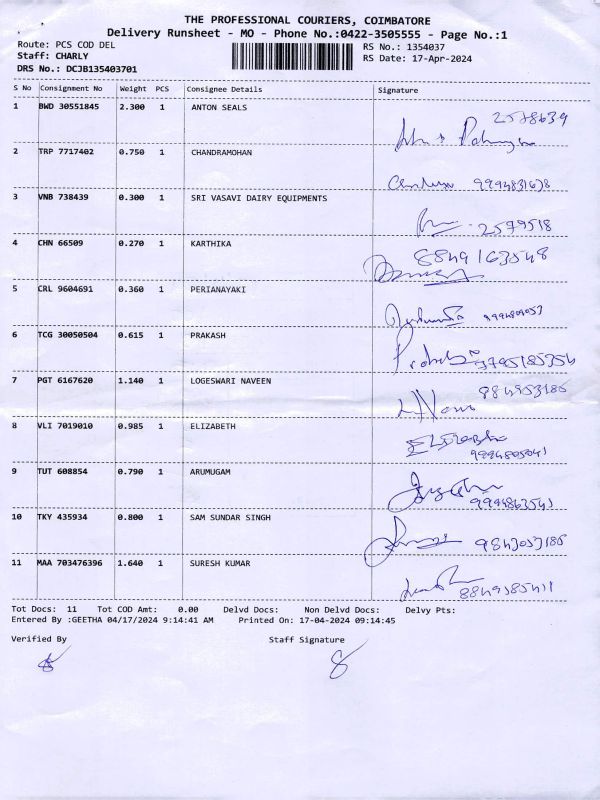 THE PROFESSIONAL COURIERS, COIMBATORE
Delivery Runsheet - MO - Phone No.:0422-3505555 - Page No.:1
Route: PCS COD DEL RS No.: 1354037
Staff: CHARLY RS Date: 17-Apr-2024
DRS No.: DCJB135403701
S No Consignment No Weight PCS Consignee Details Signature
1 BWD 30551845 2.300 1 ANTON SEALS
2578639
2 TRP 7717402 0.750 1 CHANDRAMOHAN
3 VNB 738439 0.300 1 SRI VASAVI DAIRY EQUIPMENTS
2579518
4 CHN 66509 0.270 1 KARTHIKA
8849163548
5 CRL 9604691 0.360 1 PERIANAYAKI
6 TCG 30050504 0.615 1 PRAKASH
7 PGT 6167620 1.140 1 LOGESWARI NAVEEN
8 VLI 7019010 0.985 1 ELIZABETH
9 TUT 608854 0.790 1 ARUMUGAM
10 TKY 435934 0.800 1 SAM SUNDAR SINGH
11 MAA 703476396 1.640 1 SURESH KUMAR
Tot Docs: 11 Tot COD Amt: 0.00 Delvd Docs: Non Delvd Docs: Delvy Pts:
Entered By :GEETHA 04/17/2024 9:14:41 AM Printed On: 17-04-2024 09:14:45
Verified By Staff Signature